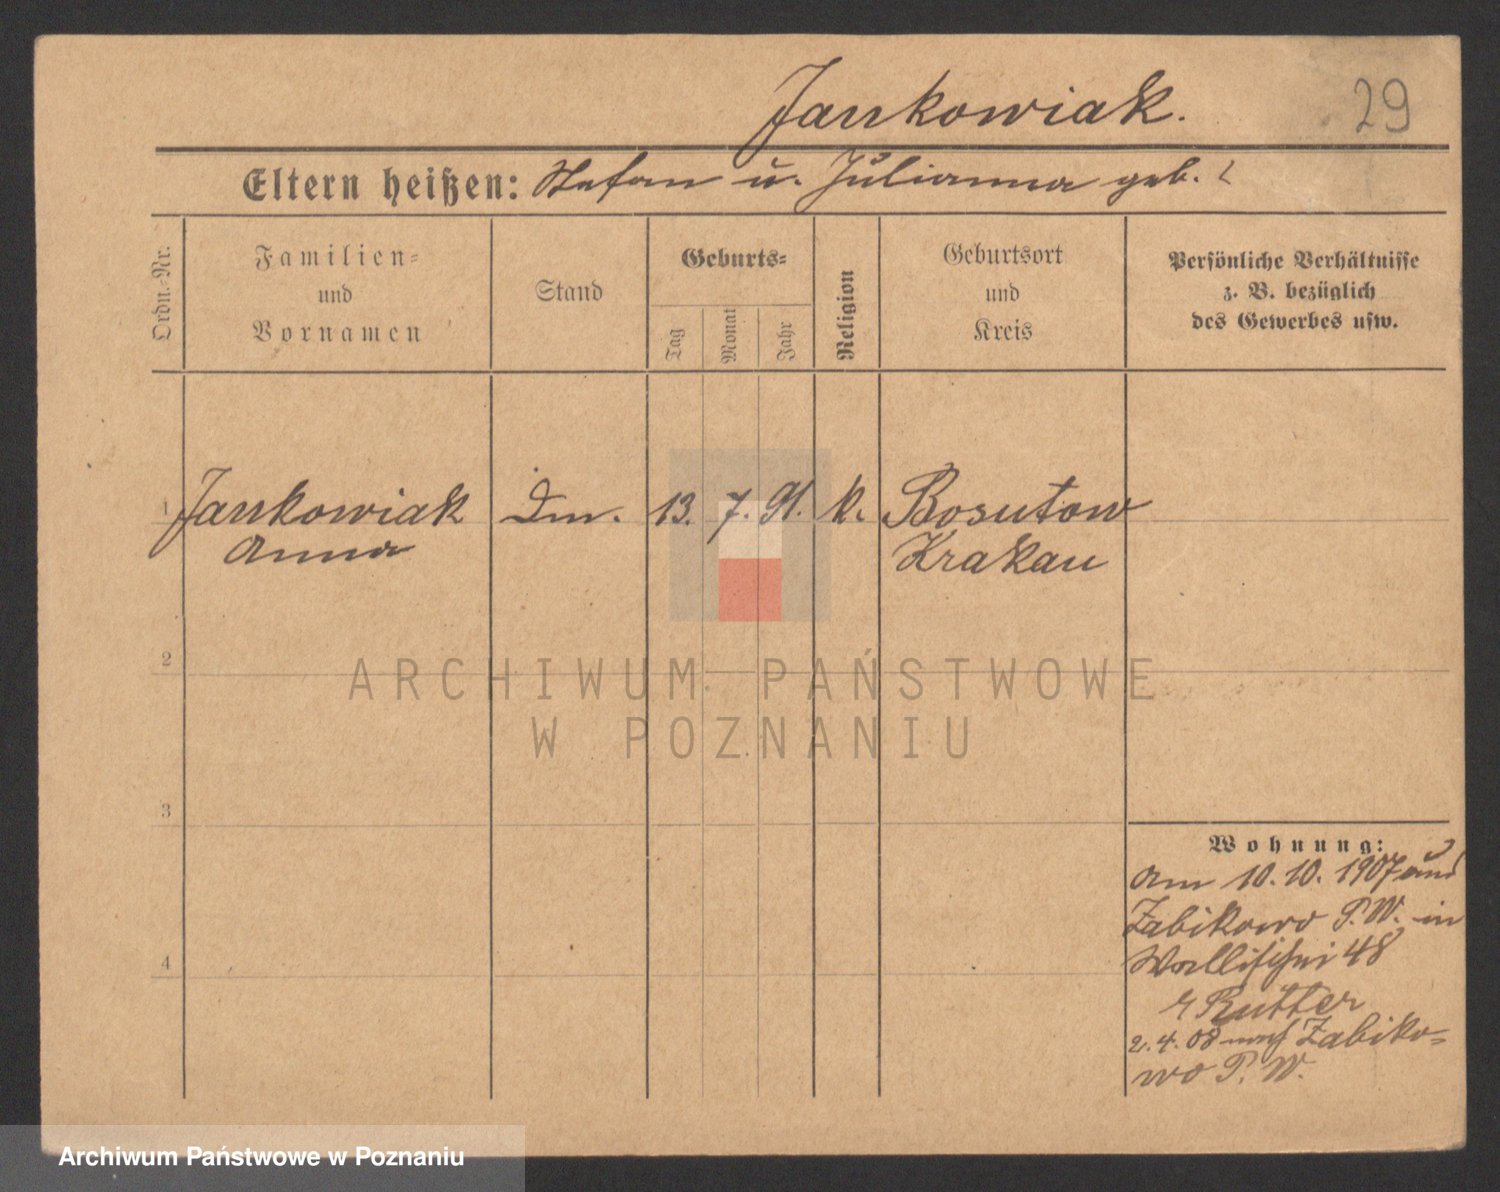 Jankowiak.
29
Eltern heißen: Stefan u. Julianna geb. ?
Ordn.-Nr.
Familien-
und
Vornamen
Stand
Geburts-
Tag
Monat
Jahr
Religion
Geburtsort
und
Kreis
Persönliche Verhältnisse
z. B. bezüglich
des Gewerbes usw.
1 Jankowiak Dm. 13. 7. 91. k. Bosutow
Anna Krakau
2
3
4
Wohnung:
Am 10.10.1907 aus
Zabikowo P.W. in
Wallischei 48
Rutter
2.4.08 nach Zabiko-
wo P. W.
ARCHIWUM PAŃSTWOWE
W POZNANIU
Archiwum Państwowe w Poznaniu